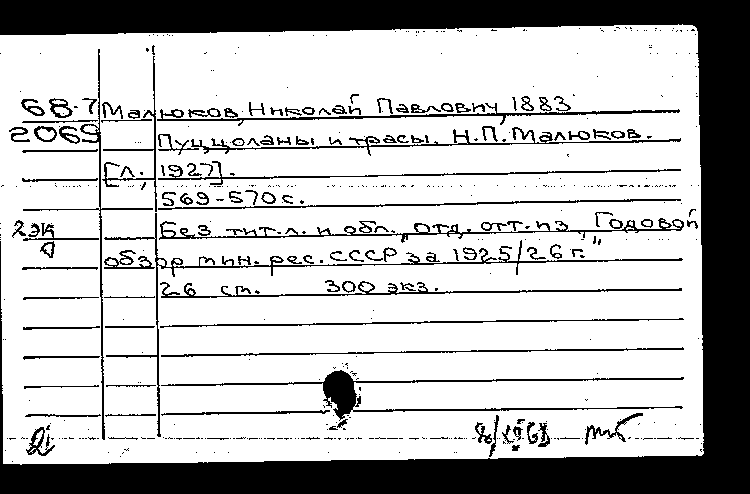 68-7 Малюков, Николай Павлович, 1883
2069 Пуццоланы и трасы. Н.П. Малюков.
[Л., 1927].
569-570 с.
2 эк Без тит. л. и обл. "отд. отт. из "Годовой
обзор мин. рес. СССР за 1925/26 г."
26 ст. 300 экз.